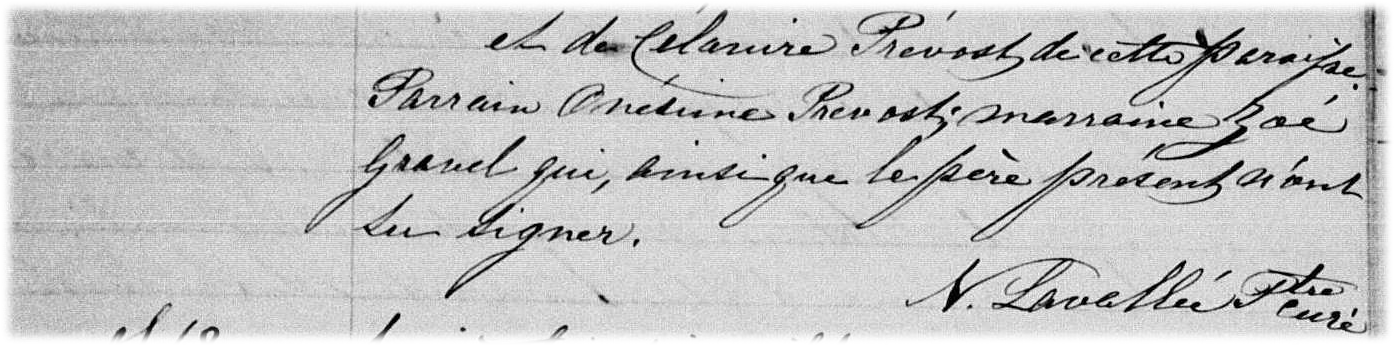 et de Célanire Prévost de cette paroisse.
Parrain Onésime Prevost; marraine Zoé
Gravel qui, ainsi que le père présent n'ont
su signer.
N. Lavallée Ptre
curé